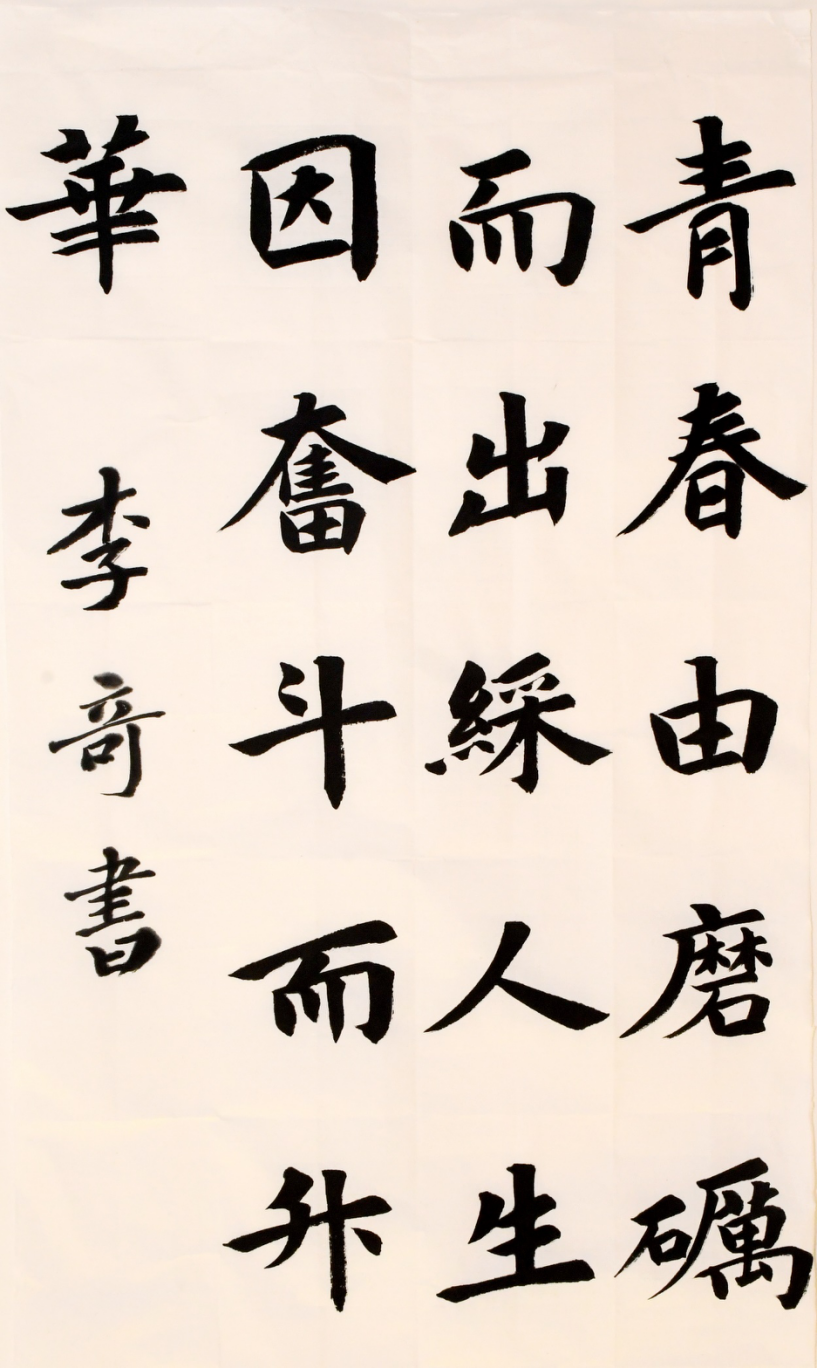 青春由磨礪
而出綵人生
因奮斗而升
華
李奇書